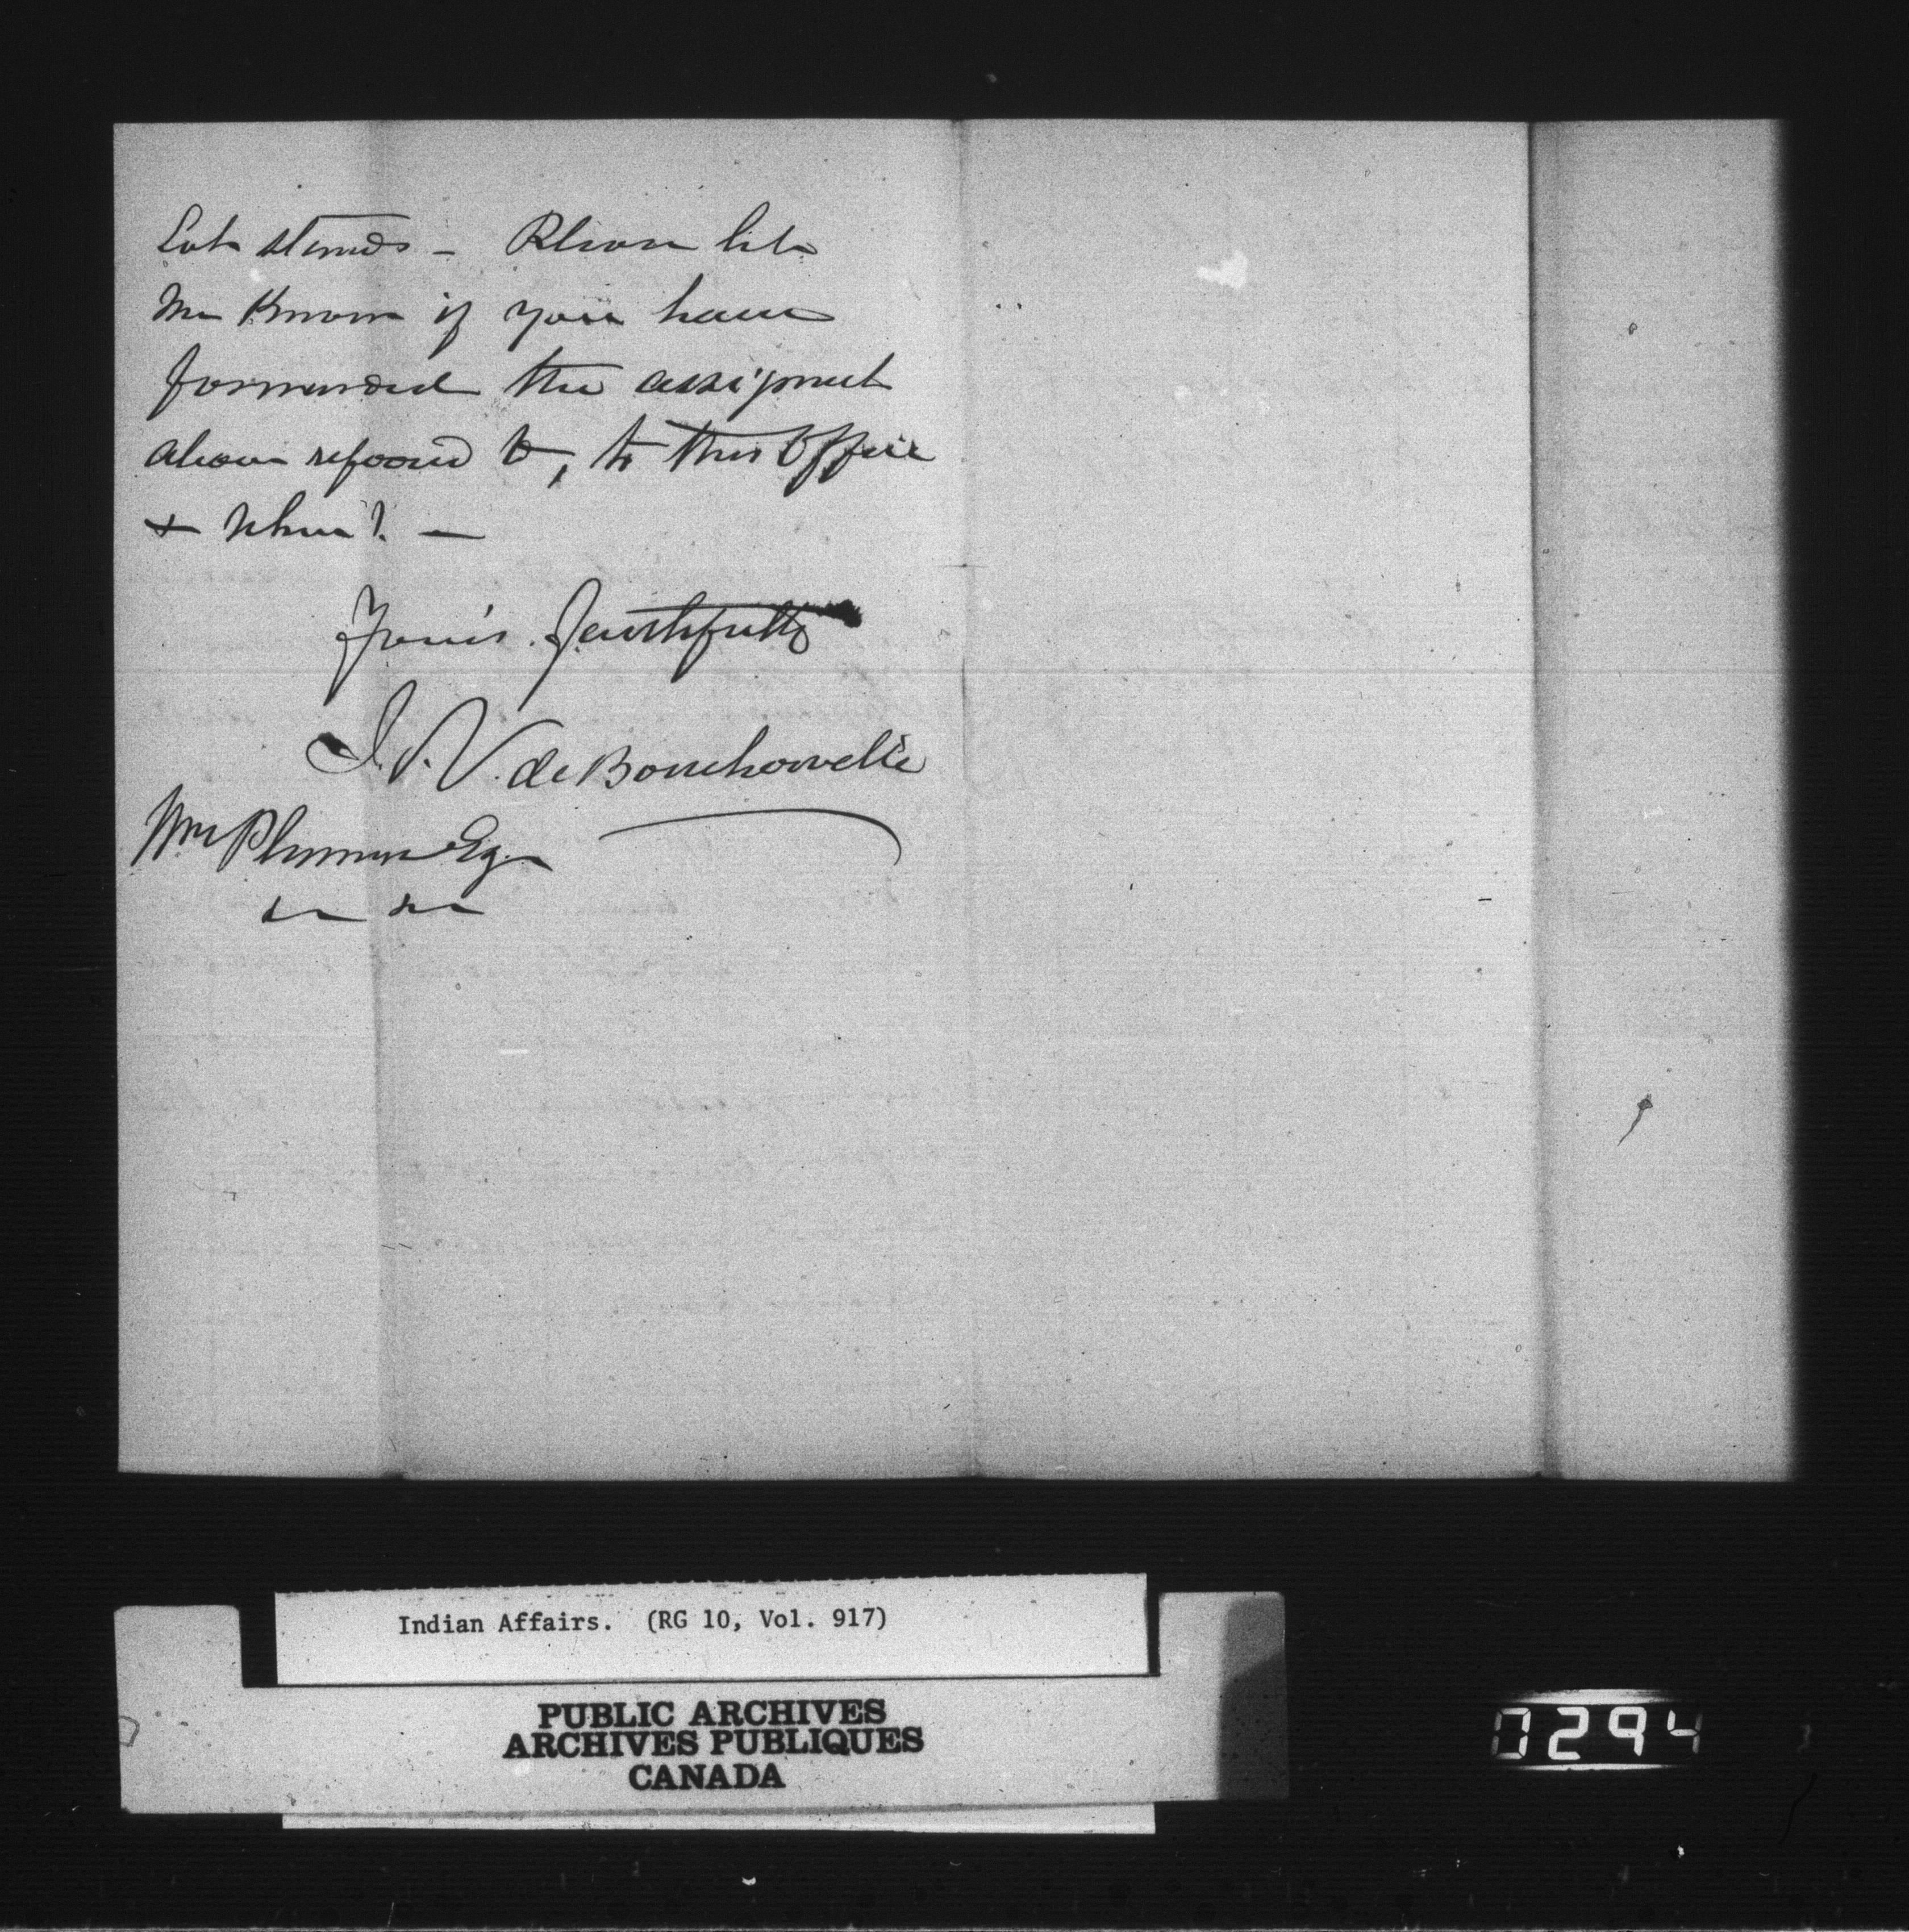 Lot stands – Please let
me know if you have
forwarded the assignmt
above referred to, to this Office
& when? –
Yours Faithfully
J. V. de Boucherville
Wm Plummer Esq
&c &c
Indian Affairs. (RG 10, Vol. 917)
PUBLIC ARCHIVES
ARCHIVES PUBLIQUES
CANADA
0294